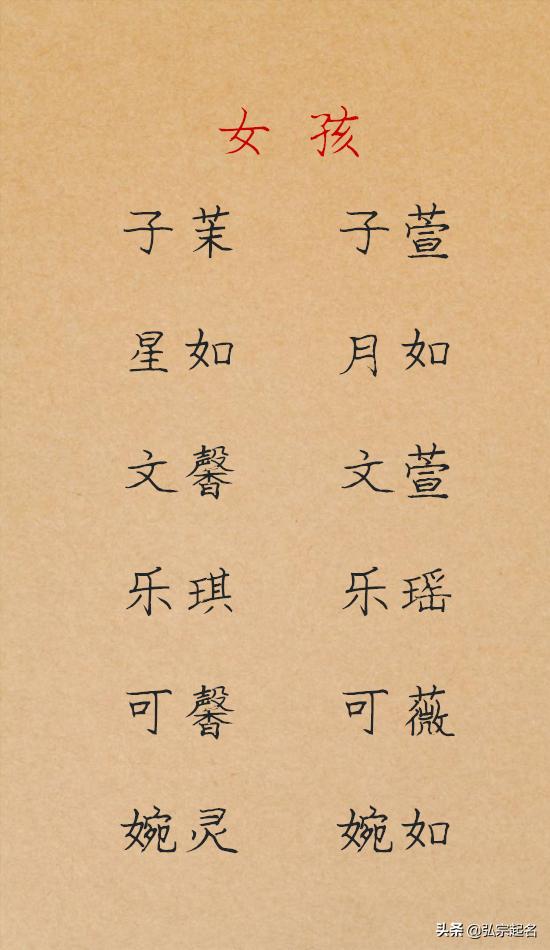 女孩
子茉 子萱
星如 月如
文馨 文萱
乐琪 乐瑶
可馨 可薇
婉灵 婉如
头条 @弘宗起名